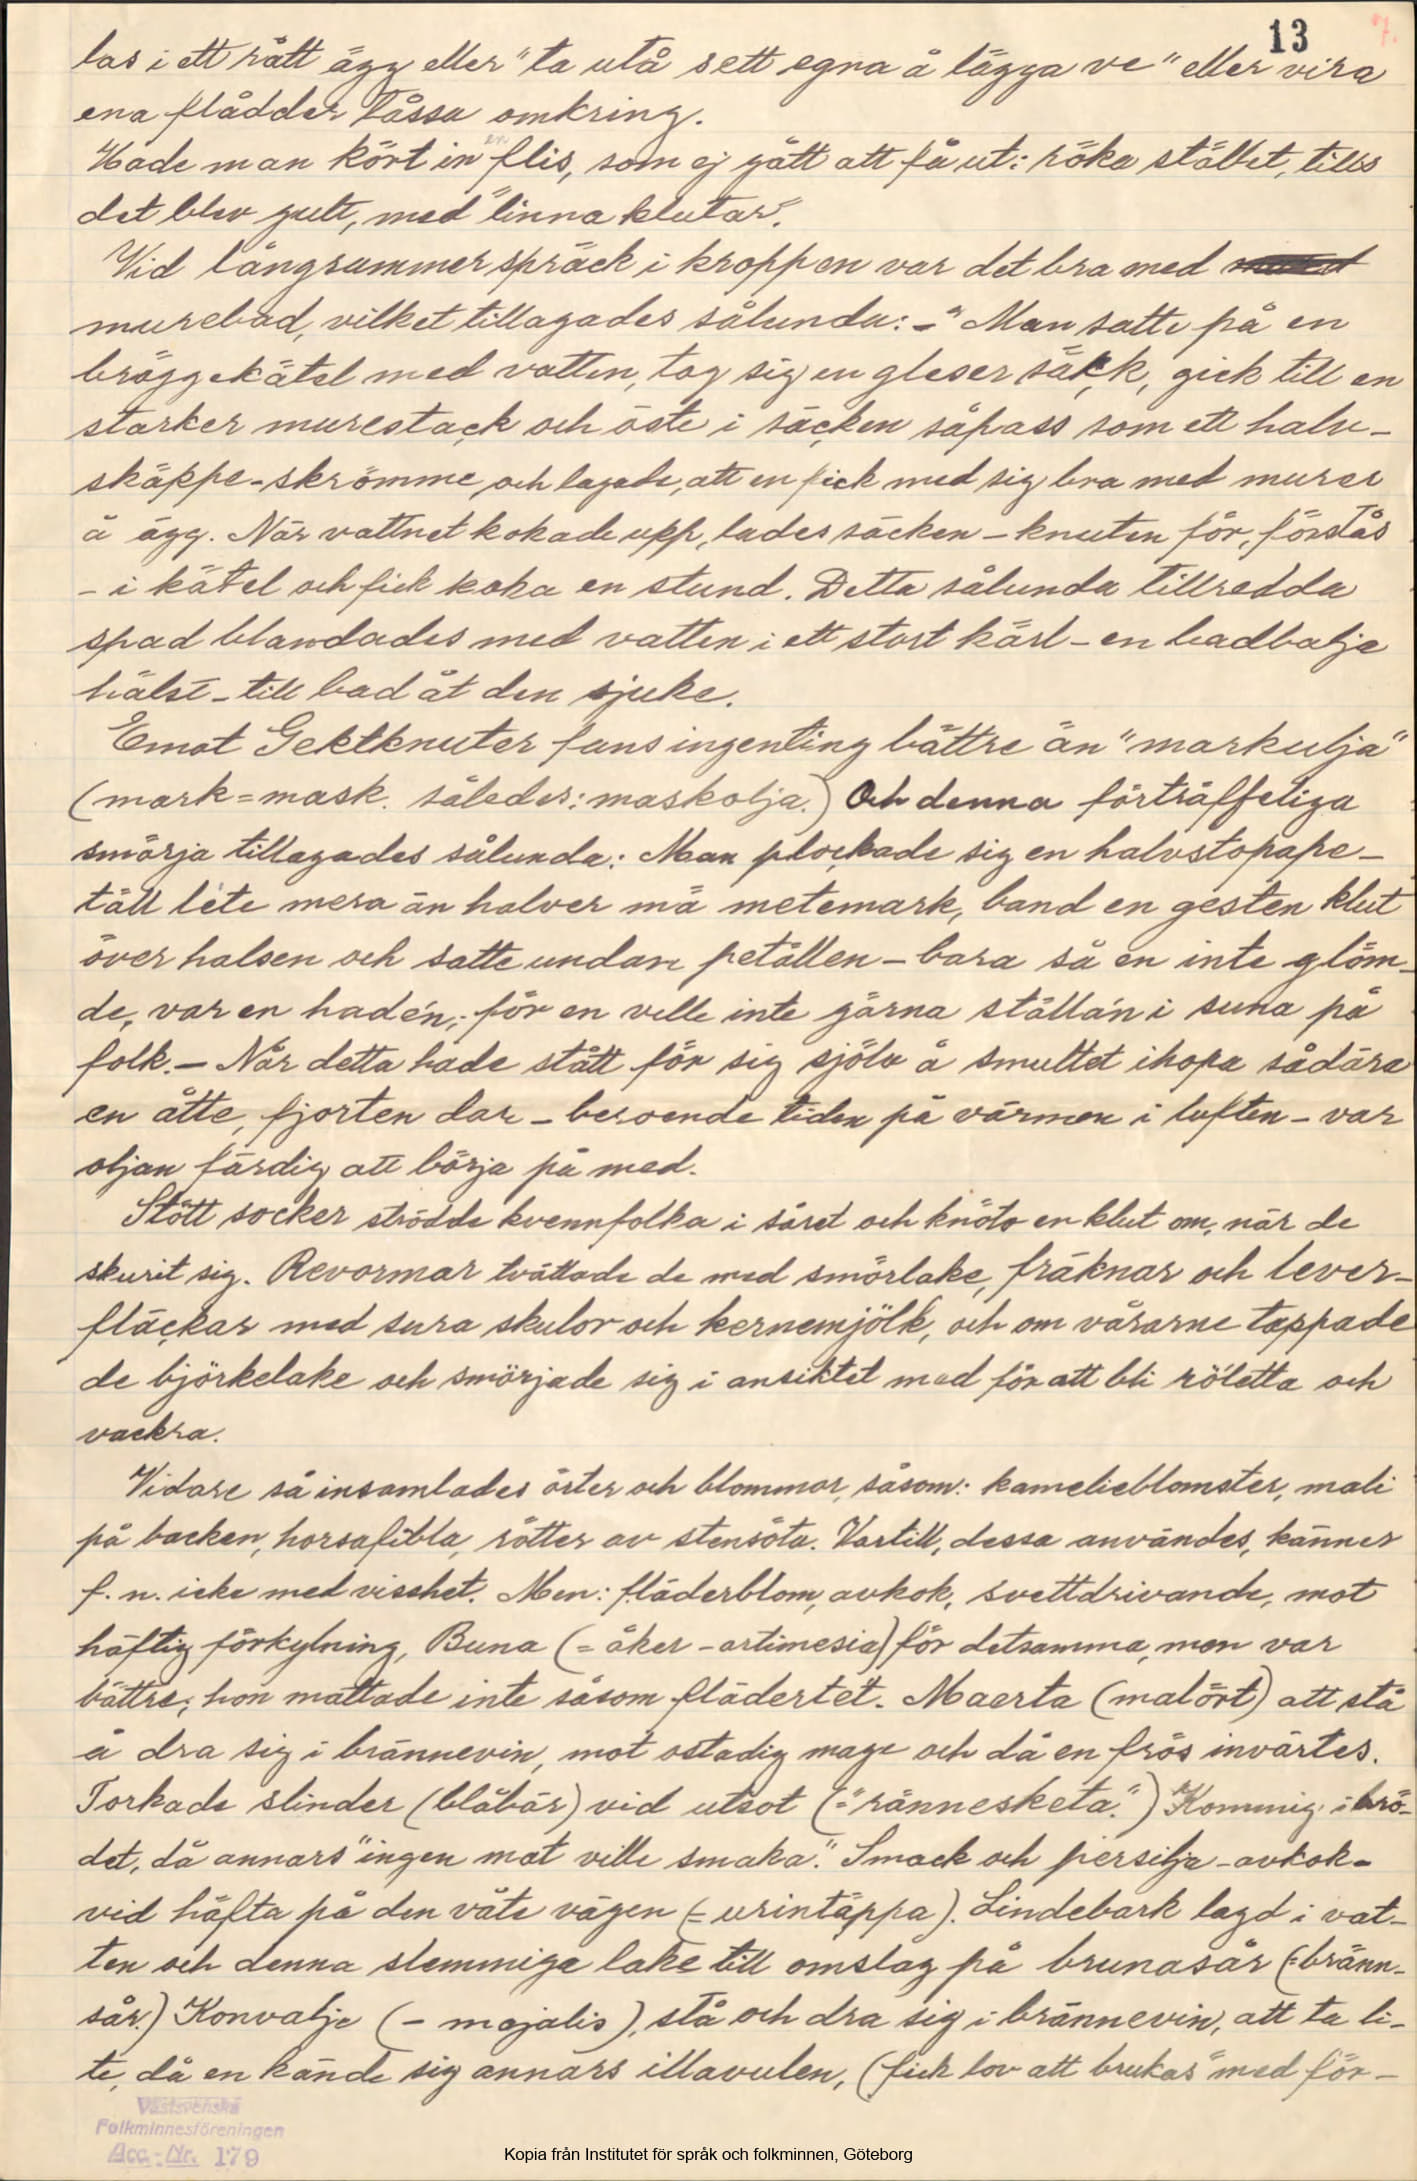 13
7.
las i ett rått ägg eller "ta utå sett egna å lägga ve" eller vira
ena flådder tåssa omkring.
Hade man kört in en flis, som ej gått att få ut: röka stället, tills
det blev gult, med "linna klutar".
Vid långsummer spräck i kroppen var det bra med
murebad, vilket tillagades sålunda: - "Man satte på en
bröggekätel med vatten, tog sig en gleser säkk, gick till en
starker murestack och öste i säcken såpass som ett halv-
skäppe-skrömme, och lagade, att en fick med sig bra med murer
å ägg. När vattnet kokade upp, lades säcken - knuten för, förstås
- i kätel och fick koka en stund. Detta sålunda tillredda
spad blandades med vatten i ett stort kärl - en badbalje
hälst - till bad åt den sjuke.
Emot Gektknuter fans ingenting bättre än "markulja"
(mark = mask. således: maskolja.) Och denna förträffeliga
smörja tillagades sålunda: Man plockade sig en halvstopape-
täll lete mera än halver mä metemark, band en gesten klut
över halsen och satte undan petällen - bara så en inte glöm-
de, var en hadén; för en velle inte gärna ställa'n i suna på
folk. - När detta hade stått för sig sjölv å smultet ihopa sådära
en åtte, fjorten dar - beroende tiden på värmen i luften - var
oljan färdig att börja på med.
Stött socker strödde kvennfolka i såret och knöto en klut om, när de
skurit sig. Revormar tvättade de med smörlake, fräknar och lever-
fläckar med sura skulor och kernemjölk, och om vårarne tappade
de björkelake och smörjade sig i ansiktet med för att bli röletta och
vackra.
Vidare så insamlades örter och blommor, såsom: kamelieblomster, mali
på backen, horsafibla, rötter av stensöta. Vartill, dessa användes, känner
f. n. icke med visshet. Men: fläderblom, avkok, svettdrivande, mot
häftig förkylning, Buna (= åker - artimesia) för detsamma, men var
bättre; hon mattade inte såsom flädertét. Maerta (malört) att stå
å dra sig i brännevin, mot ostadig mage och då en frös invärtes.
Torkade slinder (blåbär) vid utsot (= "rännesketa".) Kommig i brö-
det, då annars "ingen mat ville smaka". Smack och persilja - avkok -
vid häfta på den våte vägen (= urintäppa). Lindebark lagd i vat-
ten och denna slemmige lake till omslag på brunasår (= bränn-
sår.) Konvalje (- majalis), stå och dra sig i brännevin, att ta li-
te, då en kände sig annars illavulen, (fick lov att brukas "med för-
Västsvenska
Folkminnesföreningen
Acc.-Nr. 179
Kopia från Institutet för språk och folkminnen, Göteborg